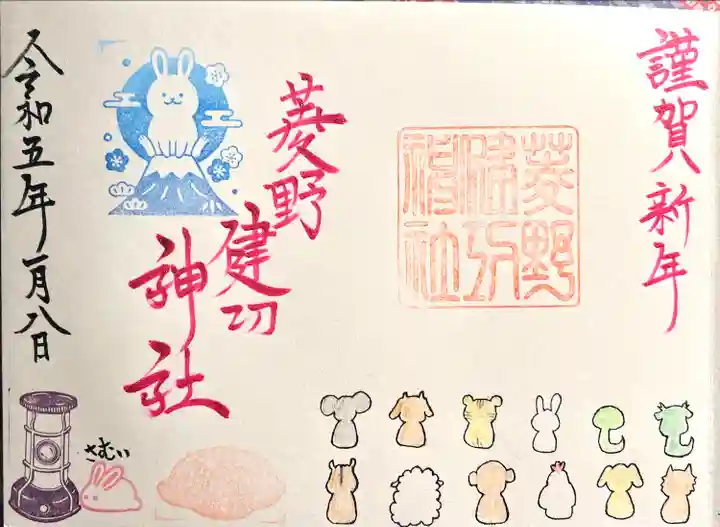 謹賀新年
菱野健功神社
菱野
健功
神社
令和五年一月八日
さむい